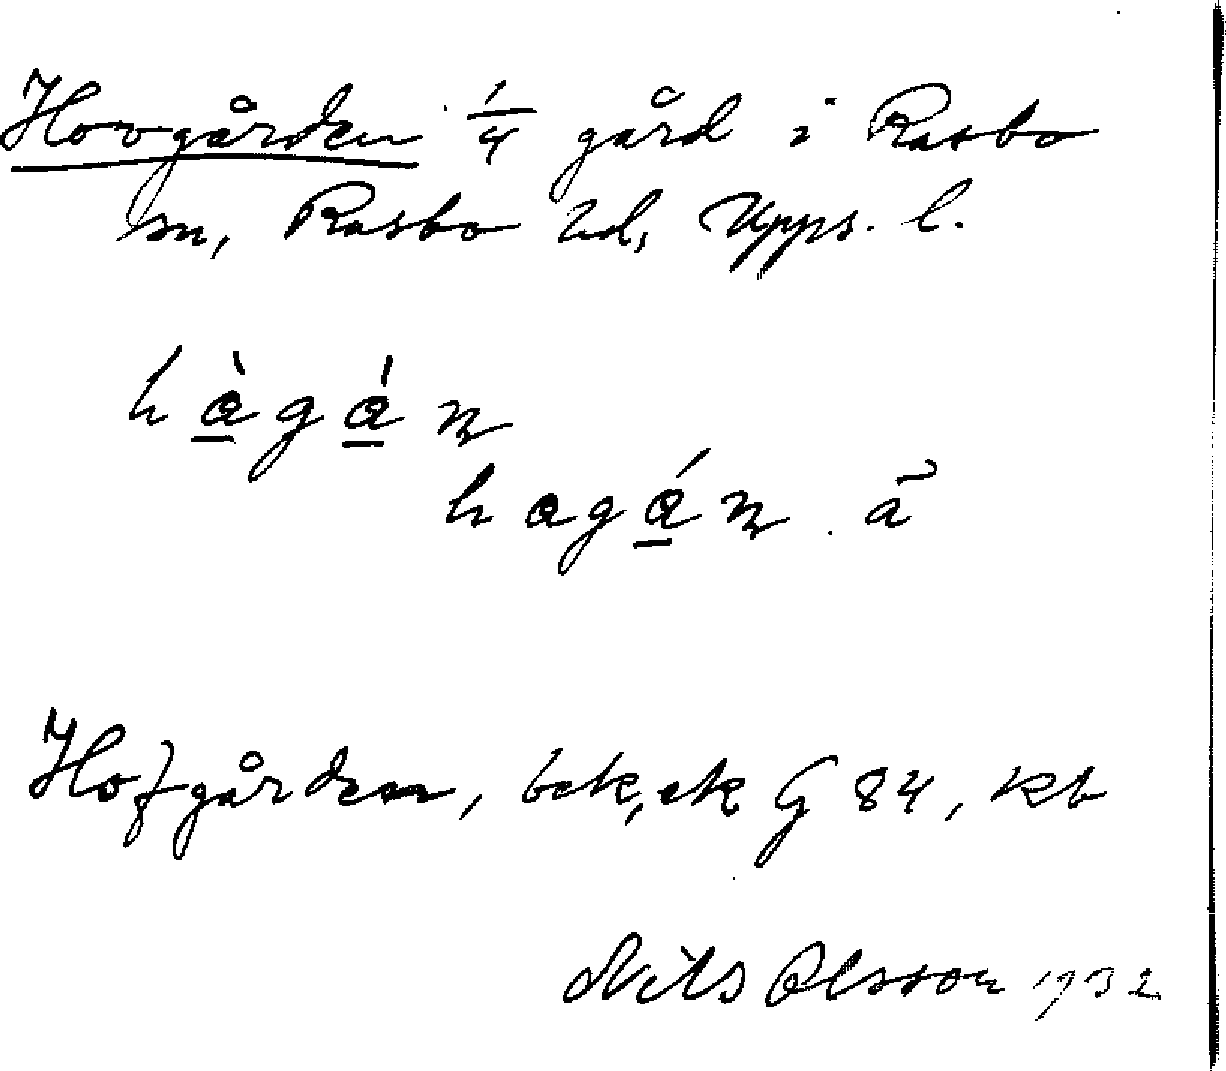 Hovgården 1/4 gård i Rasbo
sn, Rasbo hd, Upps. l.
hàgán
hagán ã
Hofgården, bek, ek G 84, kb
Nils Olsson 1932